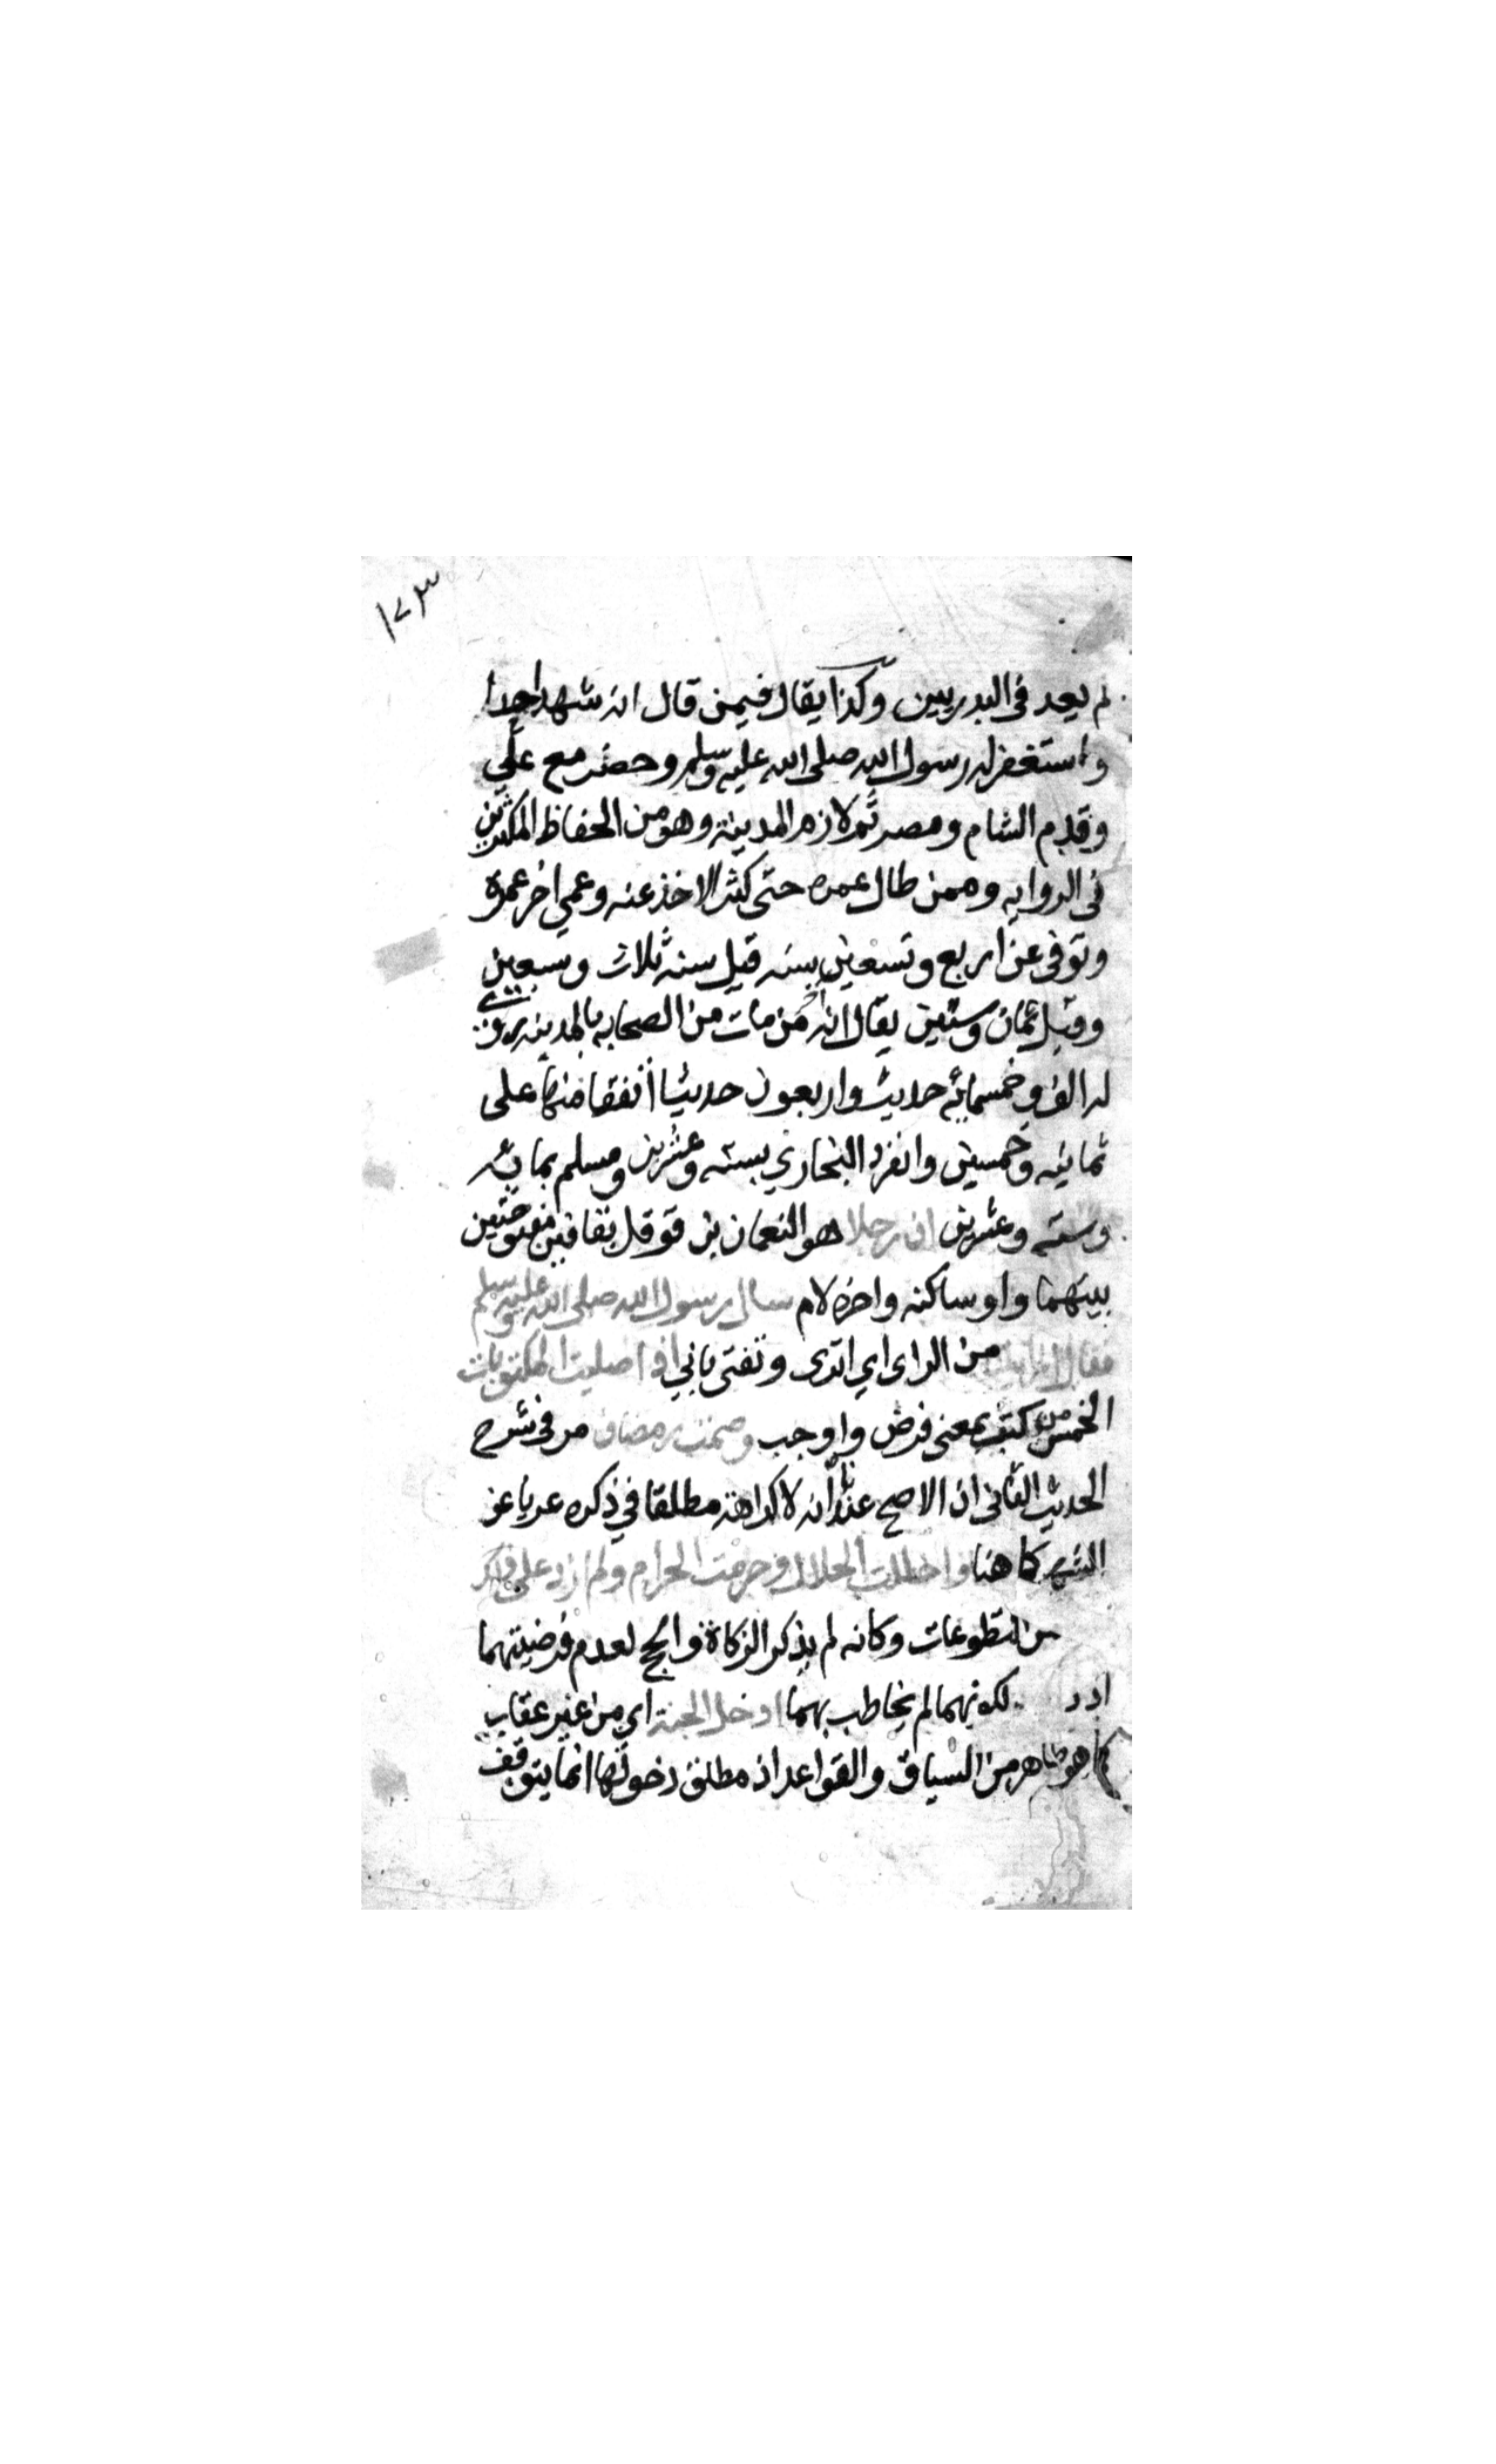 ١٧٣
لم يعد في البدريين وكذا يقال فيمن قال انه شهد احدا
واستغفر له رسول الله صلى الله عليه وسلم وحضر مع علي
وقدم الشام ومصر ثم لازم المدينة وهو من الحفاظ المكثرين
في الروايه وممن طال عمره حتى كثر الاخذ عنه وعمي اخر عمره
وتوفى عن اربع وتسعين سنه قيل سنه ثلاث وسبعين
وقيل ثمان وستين يقال انه اخر من مات من الصحابه بالمدينه روي
له الف وخمسمائه حديث واربعون حديثا اتفقا منها على
ثمانيه وخمسين وانفرد البخاري بسته وعشرين ومسلم بمائه
وسته وعشرين ان رجلا هو النعمان بن قوقل بقافين مفتوحتين
بينهما واو ساكنه واخره لام سال رسول الله صلى الله عليه وسلم
فقال ارايت من الراى اي اترى وتفتى باني اذا صليت المكتوبات
الخمس من كتب بمعنى فرض واوجب وصمت رمضان مر في شرح
الحديث الثاني ان الاصح عندنا انه لا كراهة مطلقا في ذكره عريا عن
الشهر كما هنا واحللت الحلال وحرمت الحرام ولم ازد على ذلك
من التطوعات وكانه لم يذكر الزكاة والحج لعدم فرضيتهما
لكونهما لم يخاطب بهما ادخل الجنة اي من غير عقاب
كما هو ظاهر من السياق والقواعد اذ مطلق دخولها انما يتوقف